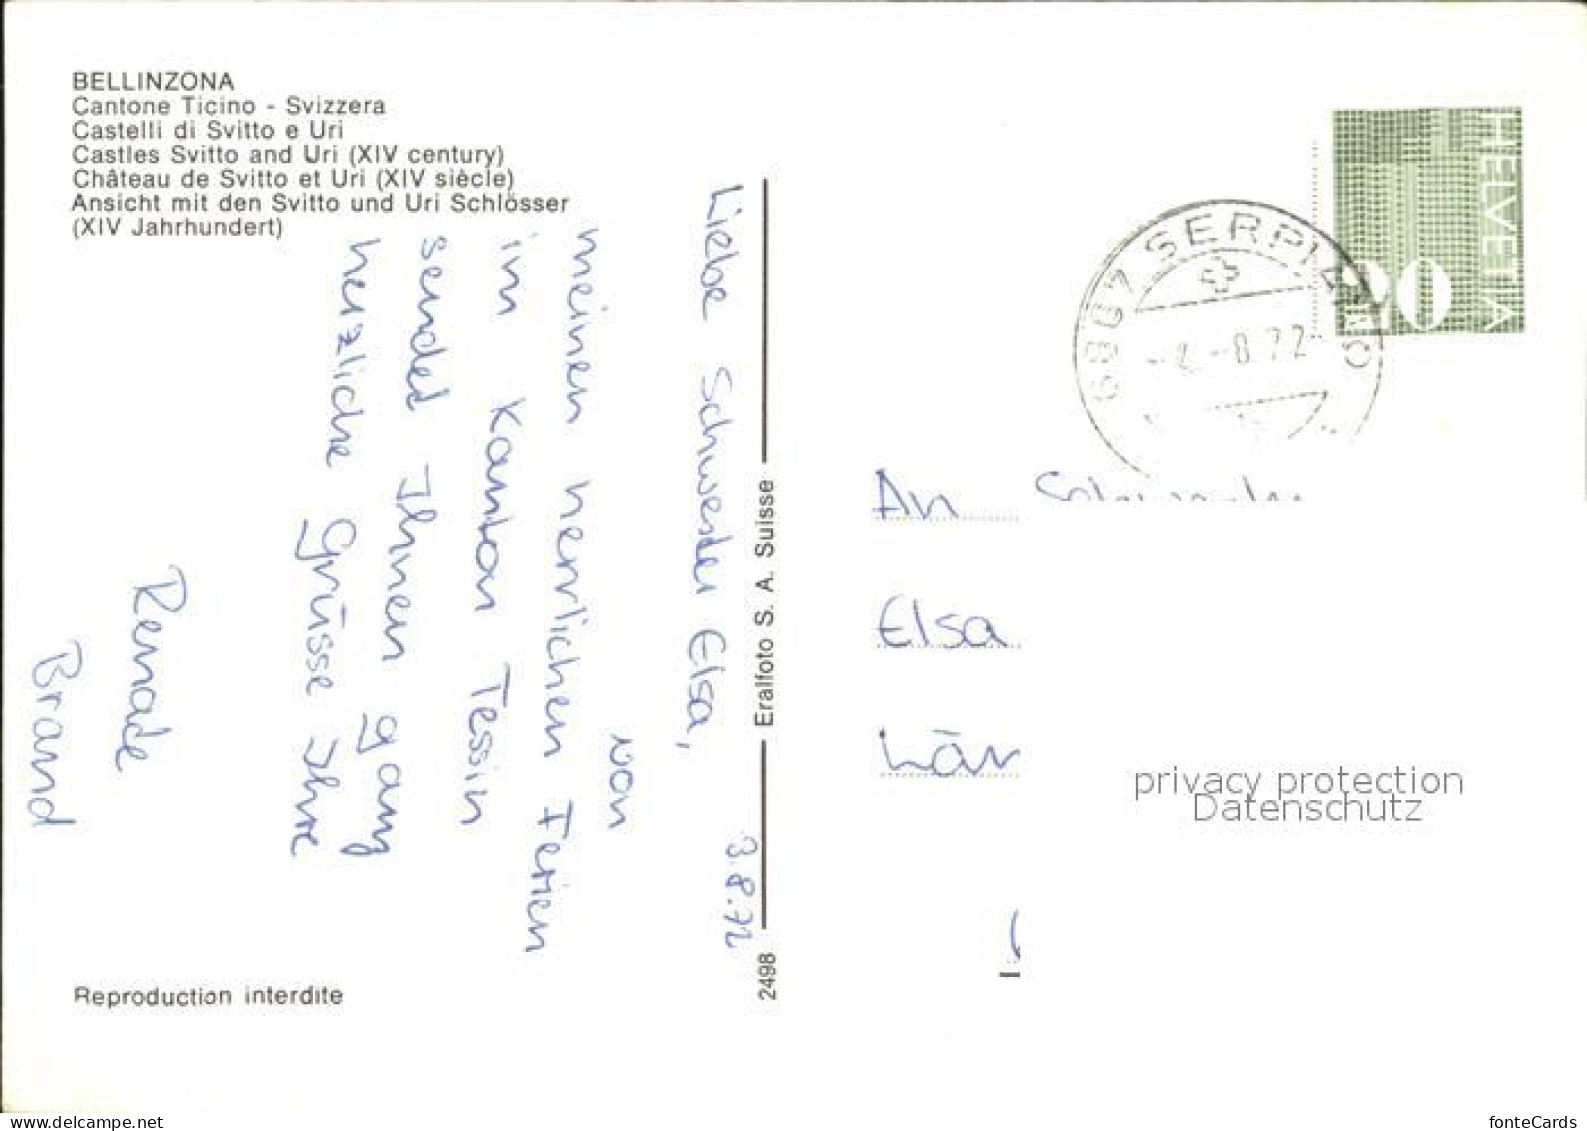 BELLINZONA
Cantone Ticino - Svizzera
Castelli di Svitto e Uri
Castles Svitto and Uri (XIV century)
Château de Svitto et Uri (XIV siècle)
Ansicht mit den Svitto und Uri Schlösser
(XIV Jahrhundert)
3.8.72
Liebe Schwester Elsa,
von
meinen herrlichen Ferien
im Kanton Tessin
sendet Ihnen ganz
herzliche Grüsse Ihre
Renate
Brand
Reproduction interdite
2498
Eralfoto S. A. Suisse
HELVETIA
6867 SERPIANO
-8.72
An
Elsa
privacy protection
Datenschutz
www.delcampe.net
fonteCards